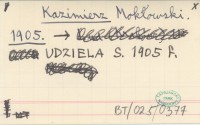 Kazimierz Mokłowski.
1905. →
UDZIELA S. 1905 r.
BT/025/0377